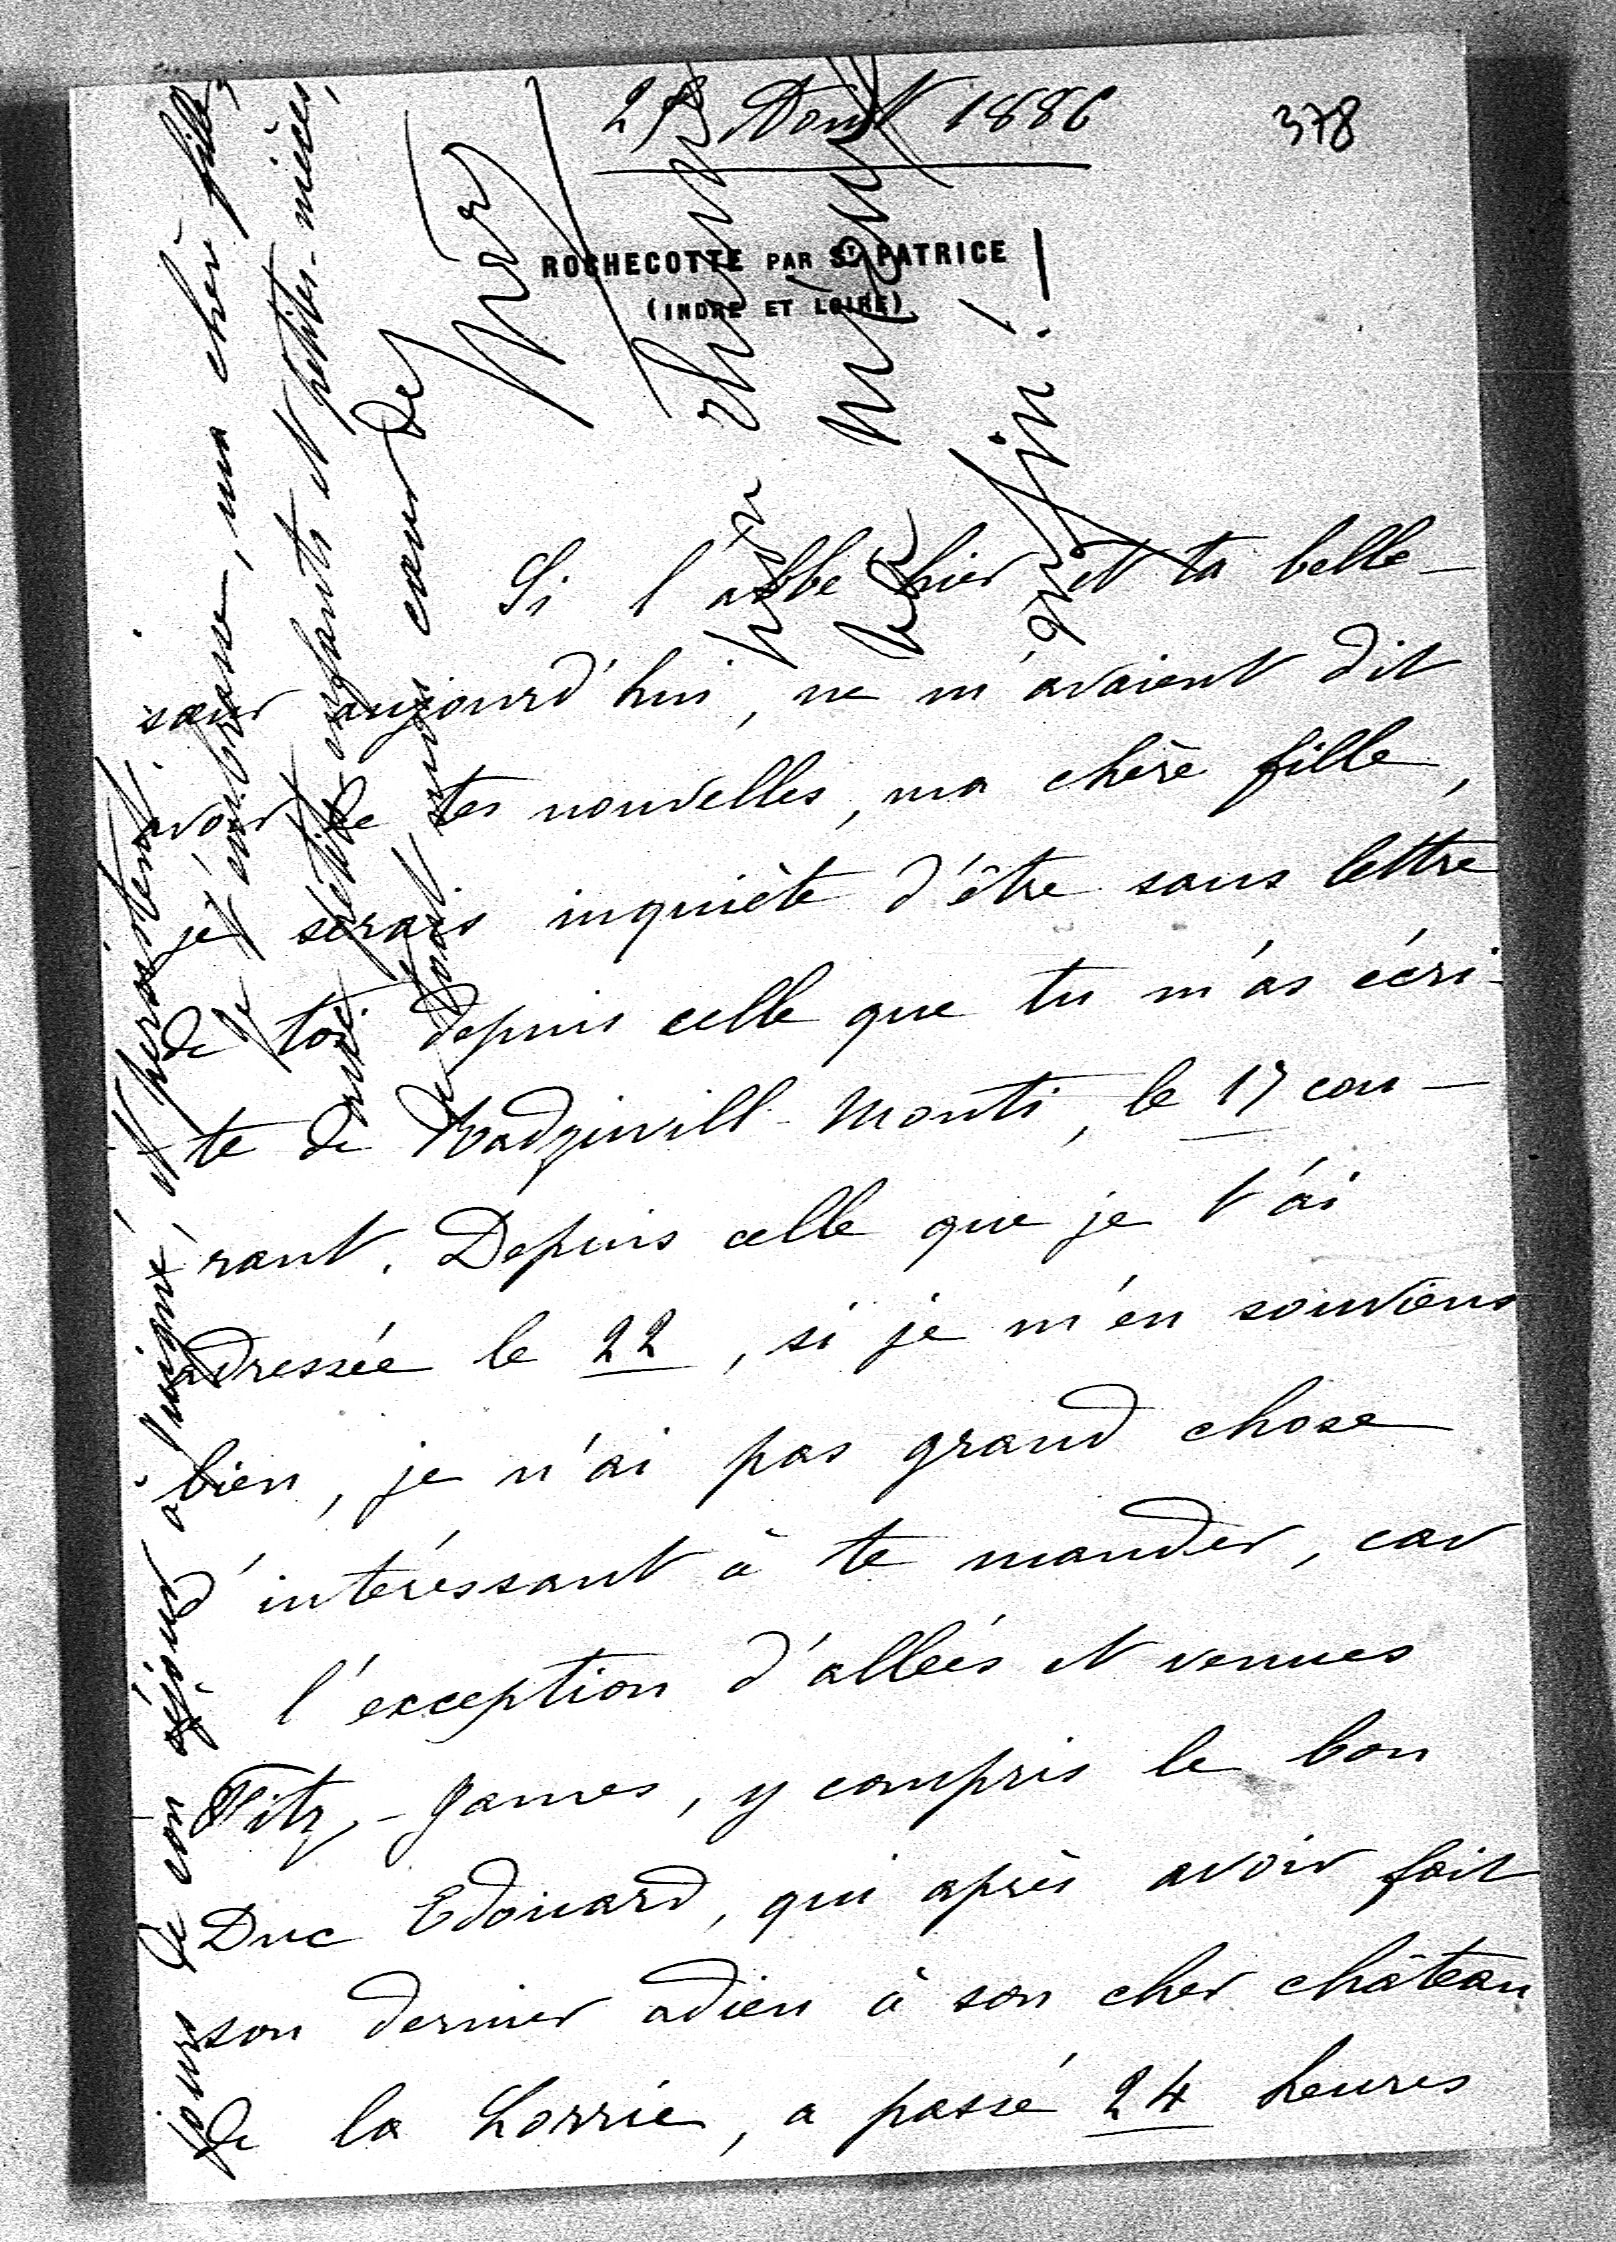 378
Août 1886
ROCHECOTTE PAR ST PATRICE
(INDRE ET LOIRE)
Si l'abbe hier et ta belle-
sœur aujourd'hui, ne m'avaient dit
avoir de tes nouvelles, ma chère fille,
je serais inquiète d'être sans lettre
de toi depuis celle que tu m'as écri-
te de Radziwill-Monti, le 17 cou-
rant. Depuis celle que je t'ai
adressée le 22, si je m'en souviens
bien, je n'ai pas grand chose
d'intéressant à te mander, car
l'exception d'allées et venues
Fitz-James, y compris le bon
Duc Edouard, qui après avoir fait
son dernier adieu à son cher château
de la Lorrie, a passé 24 heures
jours de son séjour à et persistent.
Je t'embrasse, ma chère fille,
petits enfants et petites-nièces,
cœur de
enfin !